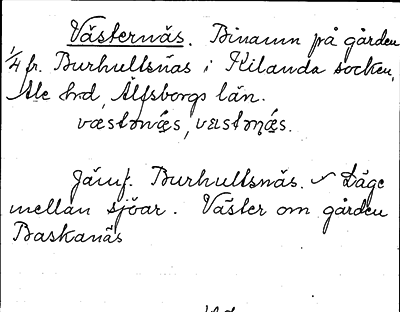 Västernäs. Binamn på gården
1/4 fr. Burhultsnäs i Kilanda socken,
Ale hrd, Älfsborgs län.
væstnǽs, væstnǽs.
Jämf. Burhultsnäs. Läge
mellan sjöar. Väster om gården
Baskanäs